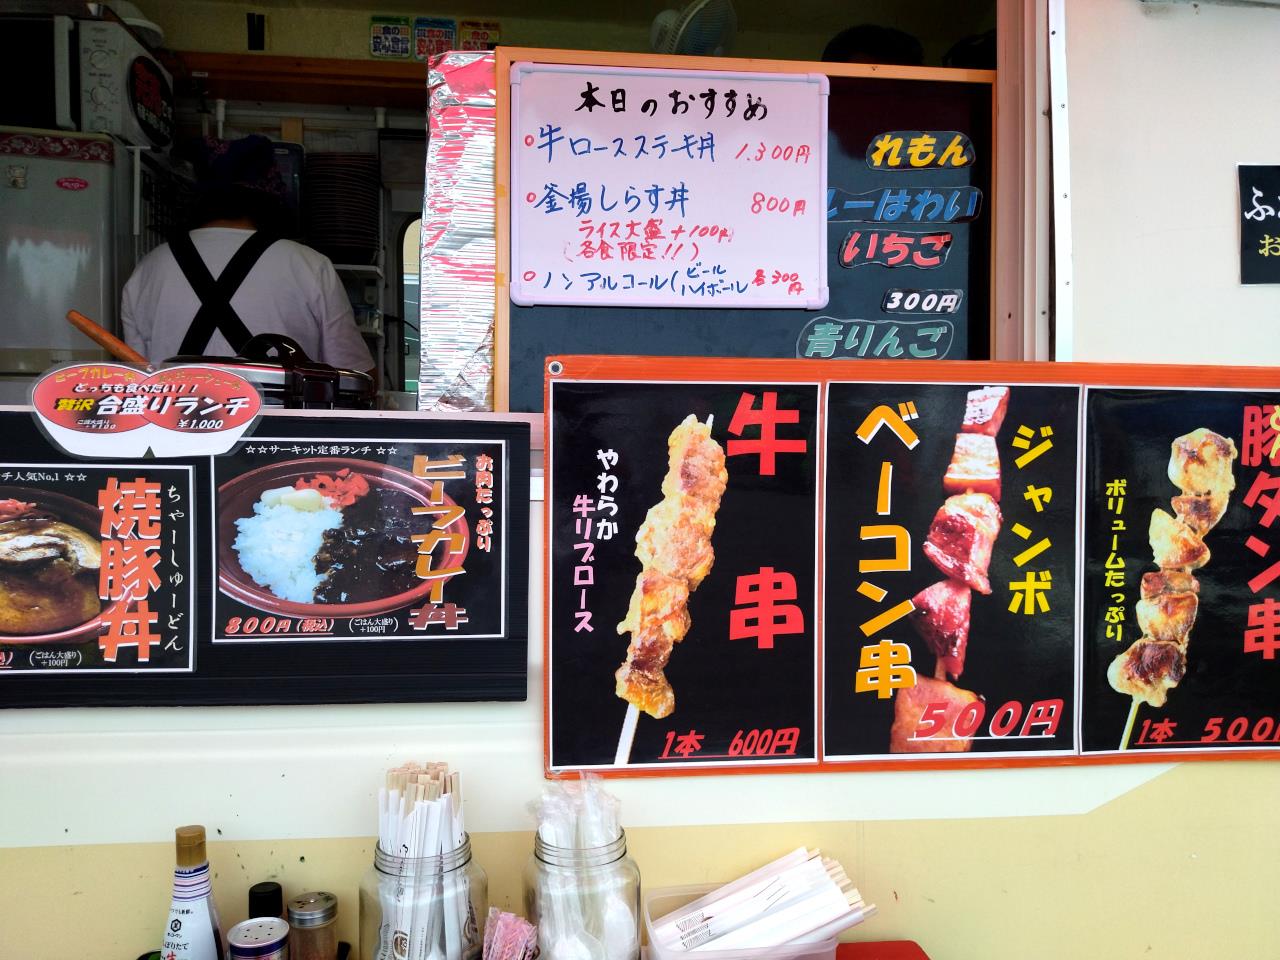 本日のおすすめ
牛ロースステーキ丼 1,300円
釜揚しらす丼 800円
ライス大盛+100円
(各食限定!!)
ノンアルコール(ビール
ハイボール 各300円
れもん
ルーはわい
いちご
300円
青りんご
どっちも食べたい!!
贅沢 合盛りランチ
ごはん大盛り
+¥100
¥1,000
チ人気No.1 ☆☆
ちゃーしゅーどん
焼豚丼
(ごはん大盛り
+100円)
☆☆サーキット定番ランチ ☆☆
お肉たっぷり
ビーフカレー丼
800円(税込)
(ごはん大盛り
+100円)
牛串
やわらか
牛リブロース
1本 600円
ジャンボ
ベーコン串
500円
豚タン串
ボリュームたっぷり
1本 500円